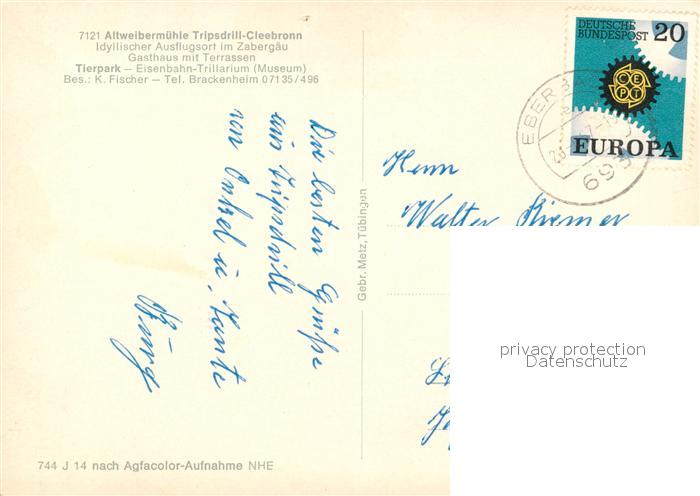 7121 Altweibermühle Tripsdrill-Cleebronn
Idyllischer Ausflugsort im Zabergäu
Gasthaus mit Terrassen
Tierpark — Eisenbahn-Trillarium (Museum)
Bes.: K. Fischer — Tel. Brackenheim 07135/496
Die besten Grüße
aus Tripsdrill
von Onkel u. Tante
744 J 14 nach Agfacolor-Aufnahme NHE
Gebr. Metz, Tübingen
DEUTSCHE
BUNDESPOST 20
CEPT
EUROPA
EBER
693
Herrn
Walter
privacy protection
Datenschutz